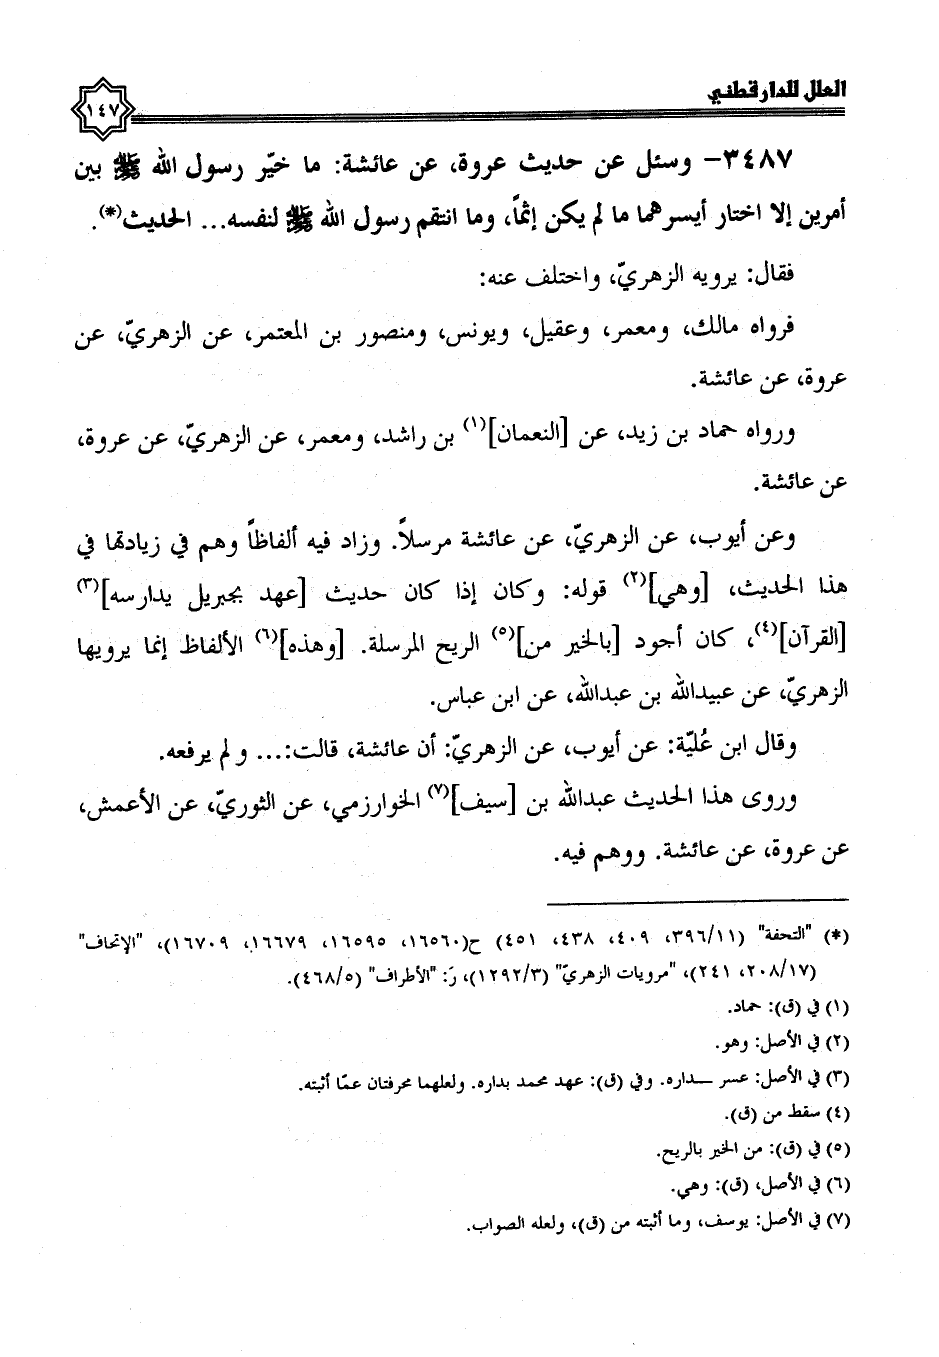 العلل للدارقطني
١٤٧
٣٤٨٧– وسئل عن حديث عروة، عن عائشة: ما خيّر رسول الله ﷺ بين
أمرين إلا اختار أيسرهما ما لم يكن إثماً، وما انتقم رسول الله ﷺ لنفسه... الحديث(*).
فقال: يرويه الزهريّ، واختلف عنه:
فرواه مالك، ومعمر، وعقيل، ويونس، ومنصور بن المعتمر، عن الزهريّ، عن
عروة، عن عائشة.
ورواه حماد بن زيد، عن [النعمان](١) بن راشد، ومعمر، عن الزهريّ، عن عروة،
عن عائشة.
وعن أيوب، عن الزهريّ، عن عائشة مرسلاً. وزاد فيه ألفاظاً وهم في زيادتها في
هذا الحديث، [وهي](٢) قوله: وكان إذا كان حديث [عهد بجبريل يدارسه](٣)
[القرآن](٤)، كان أجود [بالخير من](٥) الريح المرسلة. [وهذه](٦) الألفاظ إنما يرويها
الزهريّ، عن عبيدالله بن عبدالله، عن ابن عباس.
وقال ابن عُليّة: عن أيوب، عن الزهريّ: أن عائشة، قالت:... و لم يرفعه.
وروى هذا الحديث عبدالله بن [سيف](٧) الخوارزمي، عن الثوريّ، عن الأعمش،
عن عروة، عن عائشة. ووهم فيه.
(*) "التحفة" (٣٩٦/١١، ٤٠٩، ٤٣٨، ٤٥١) ح(١٦٥٦٠، ١٦٥٩٥، ١٦٦٧٩، ١٦٧٠٩)، "الإتحاف"
(٢٠٨/١٧، ٢٤١)، "مرويات الزهريّ" (١٢٩٢/٣)، رَ: "الأطراف" (٤٦٨/٥).
(١) في (ق): حماد.
(٢) في الأصل: وهو.
(٣) في الأصل: عسر ـــداره. وفي (ق): عهد محمد بداره. ولعلهما محرفتان عمّا أثبته.
(٤) سقط من (ق).
(٥) في (ق): من الخير بالريح.
(٦) في الأصل، (ق): وهي.
(٧) في الأصل: يوسف، وما أثبته من (ق)، ولعله الصواب.